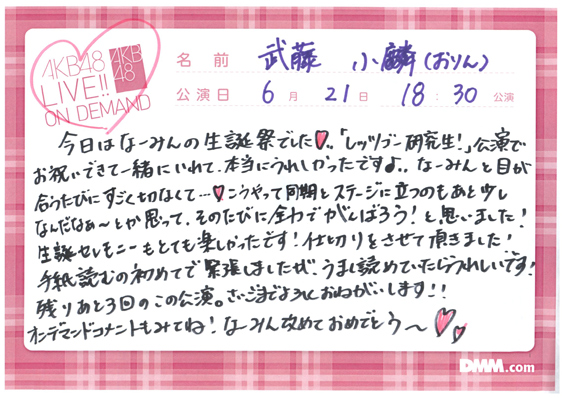 AKB48
LIVE!!
ON DEMAND
AKB
48
名前 武藤 小麟(おりん)
公演日 6月 21日 18:30 公演
今日はなーみんの生誕祭でした♥..「レッツゴー研究生!」公演で
お祝いできて一緒にいれて、本当にうれしかったですよ..なーみんと目が
合うたびにすごく切なくて…♥こうやって同期とステージに立つのもあと少し
なんだなぁ〜とか思って、そのたびに全力でがんばろう!と思いました!
生誕セレモニーもとても楽しかったです!仕切りをさせて頂きました!
手紙読むの初めてで緊張しましたが、うまく読めていたらうれしいです!
残りあと3回のこの公演。さいごまでよろしくおねがいします!!
オンデマンドコメントもみてね!なーみん改めておめでとう〜♥♥
DMM.com